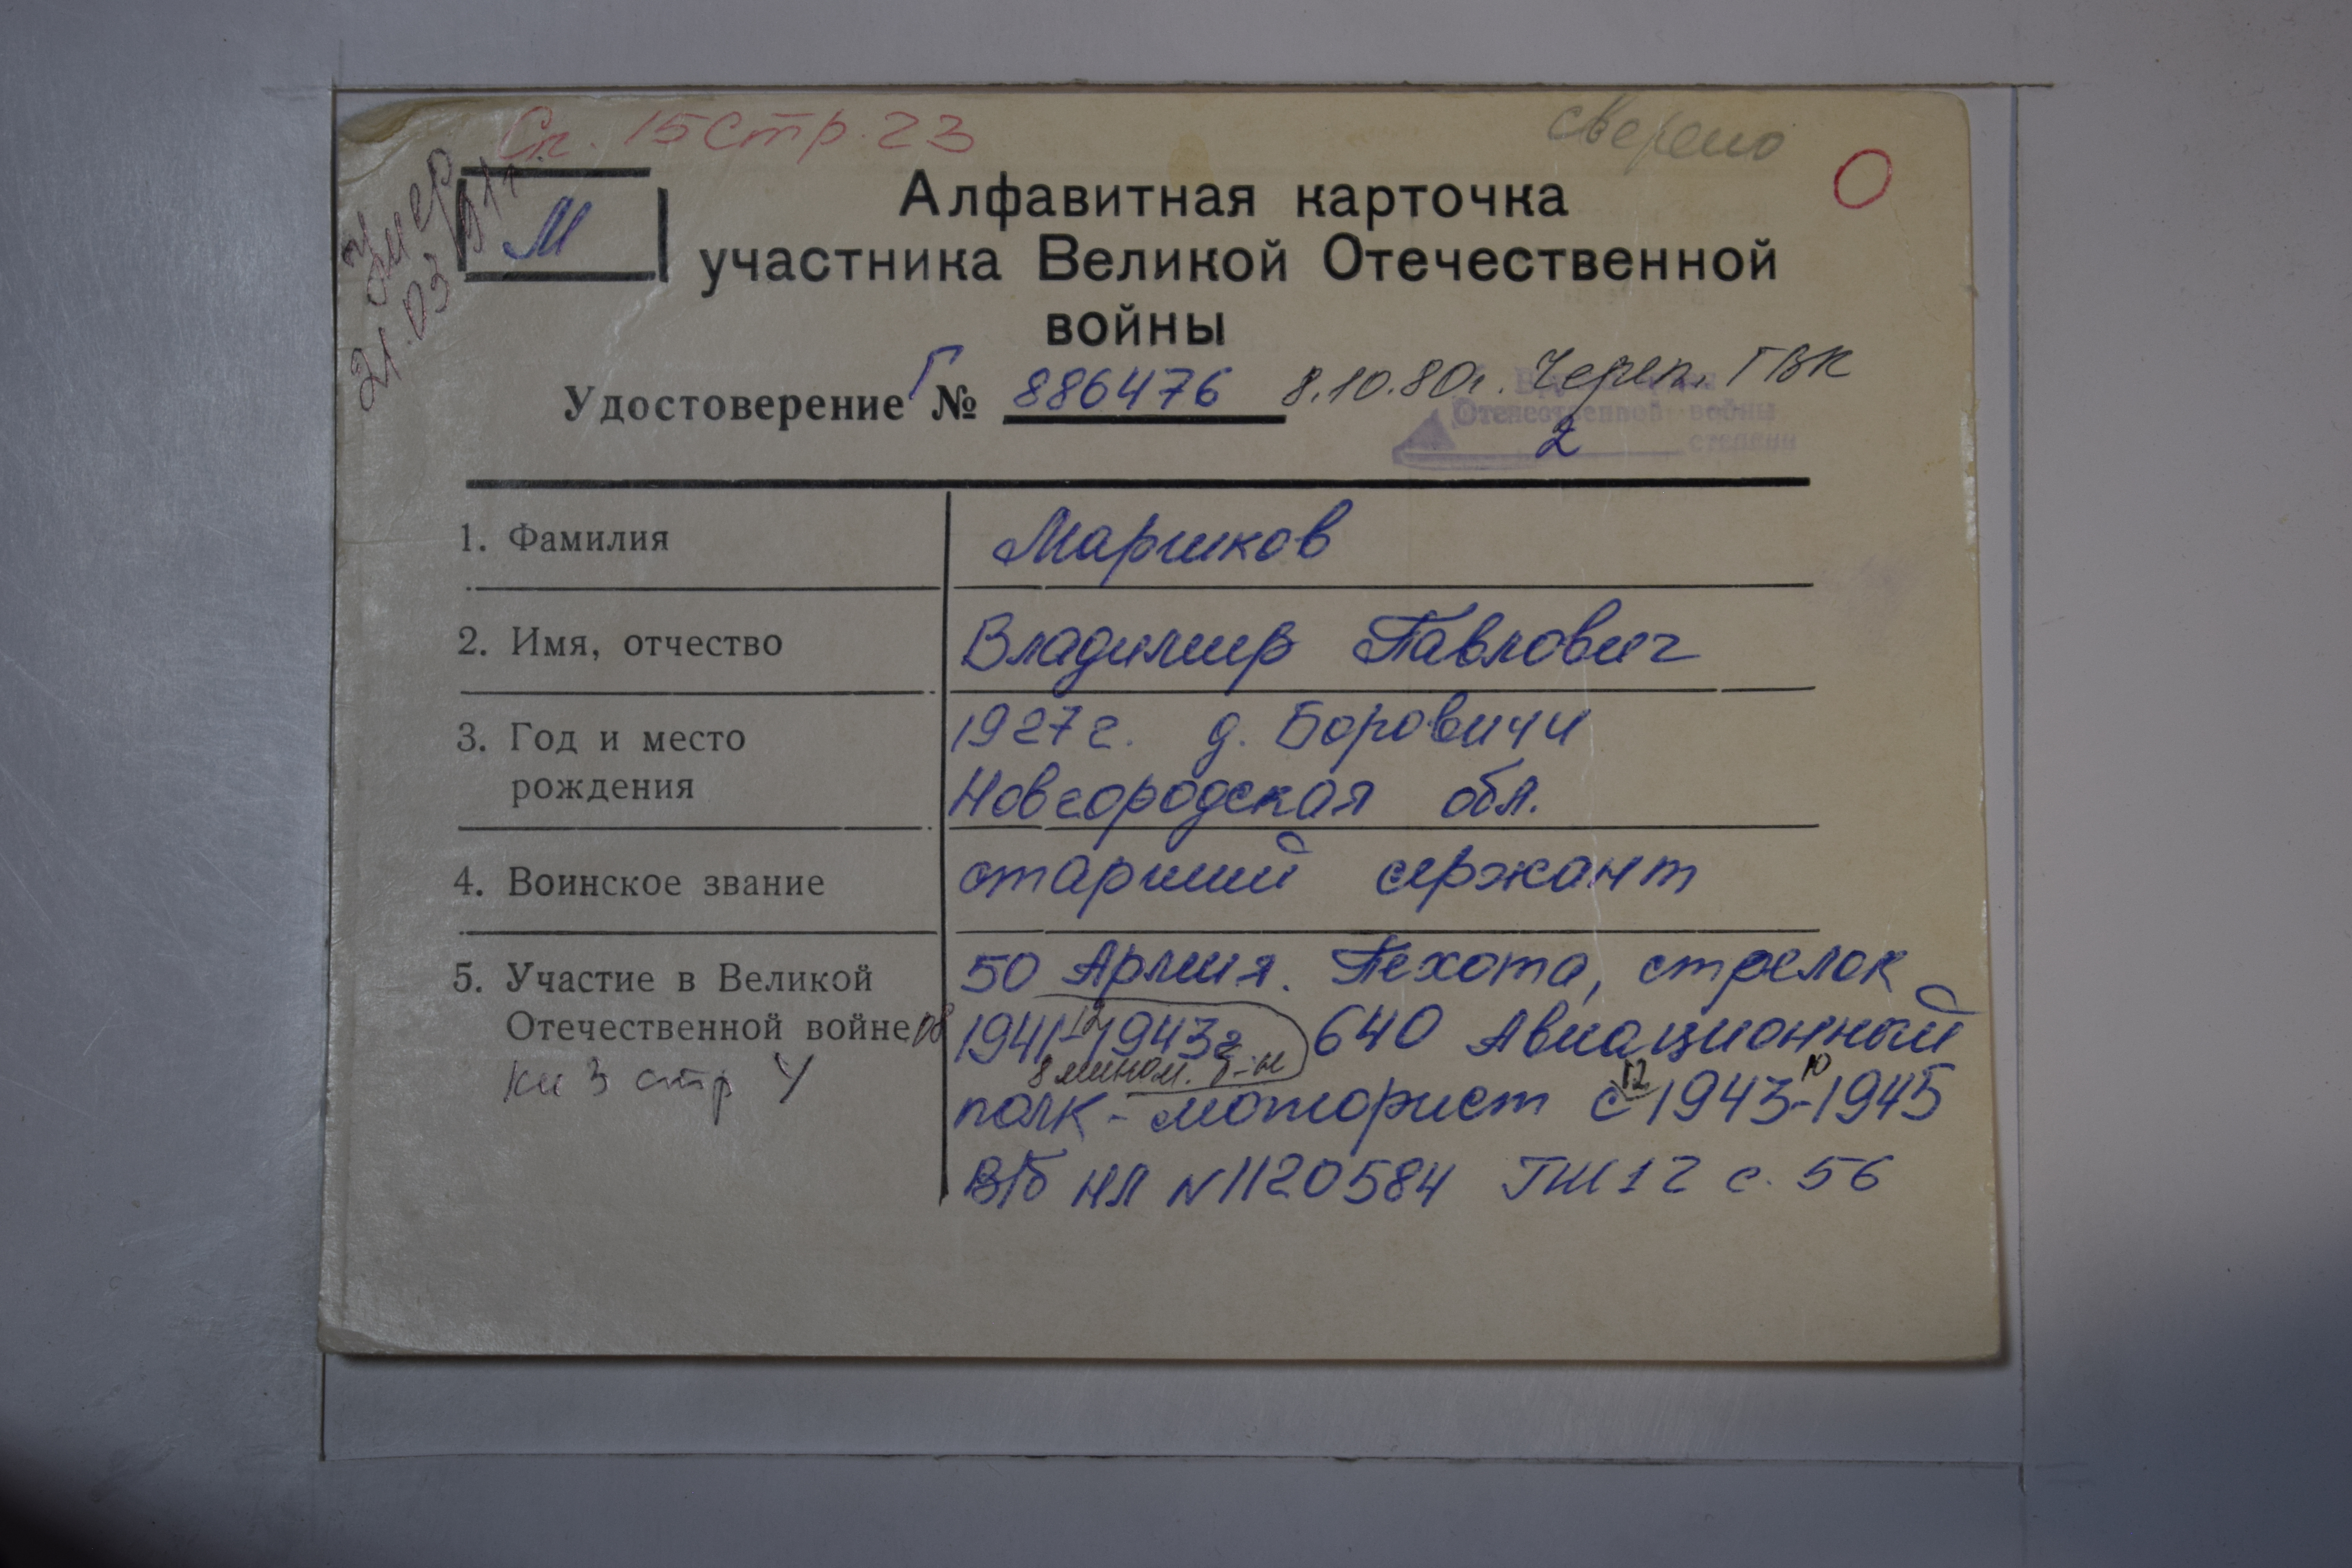 Сп. 15 стр. 23
сверено
Умер
21.03
М
Алфавитная карточка
участника Великой Отечественной
войны
Удостоверение Г № 886476 8.10.80г. Череп. ГВК
Отечественной войны
2 степени
1. Фамилия
Маршков
2. Имя, отчество
Владимир Павлович
3. Год и место
рождения
1927 г. д. Боровичи
Новгородская обл.
4. Воинское звание
старший сержант
5. Участие в Великой
Отечественной войне
Кн 3 стр 4
50 Армия. Пехота, стрелок
08 1941-12 1943г 640 Авиационный
8 мином. б-н
полк - моторист с 12 1943-10 1945
В/б НЛ N1120584 ГШ 12 с. 56